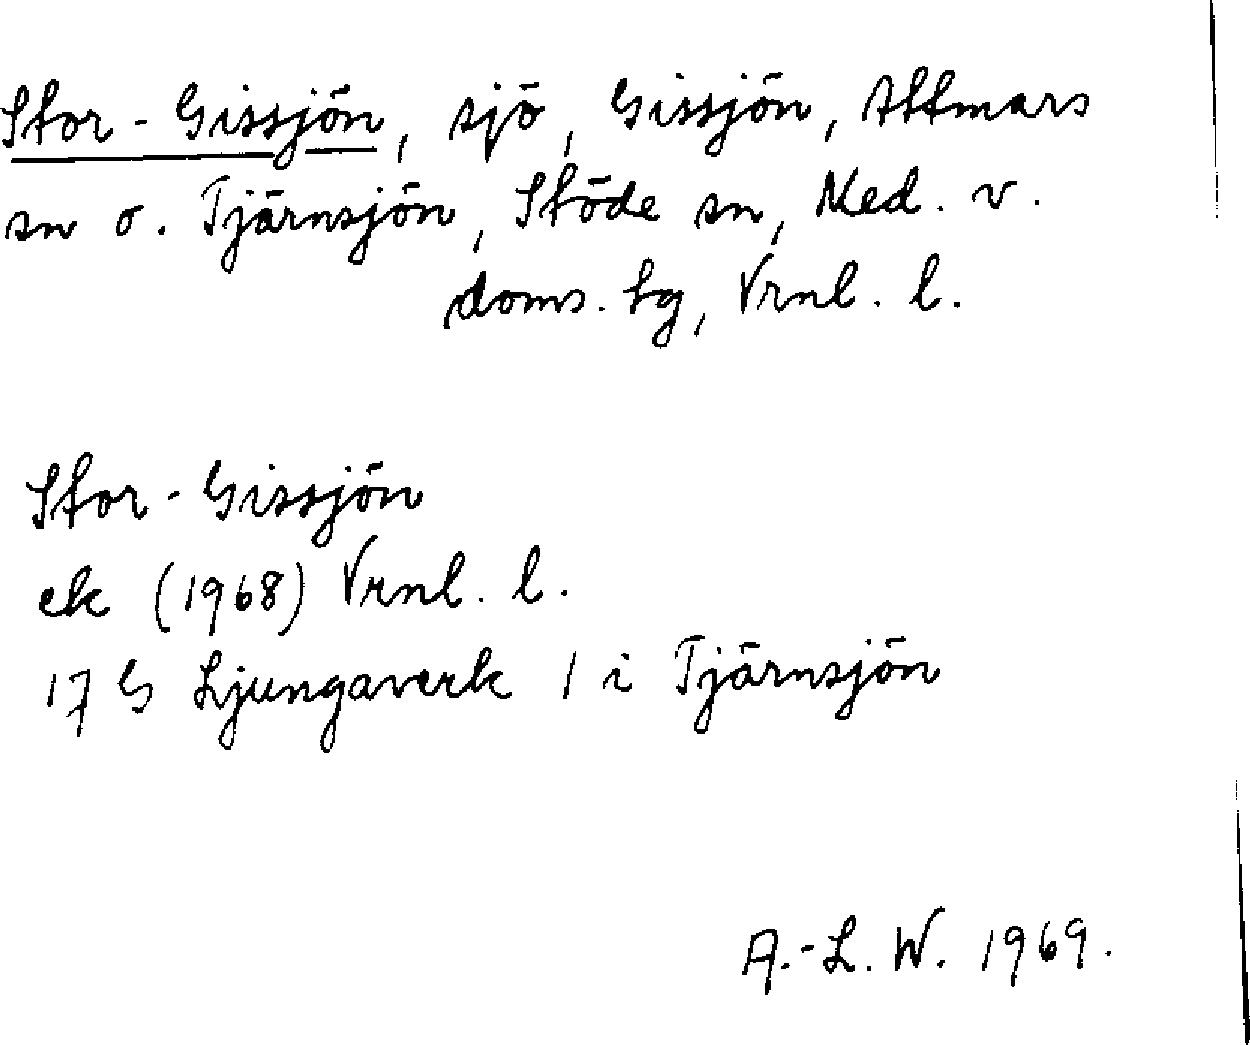 Stor-Gissjön, sjö, Gissjön, Attmars
sn o. Tjärnsjön, Stöde sn, Med. v.
doms. hg, Vrnl. l.
Stor-Gissjön
ek (1968) Vrnl. l.
17 G Ljungaverk 1 i Tjärnsjön
A.-L. W. 1969.